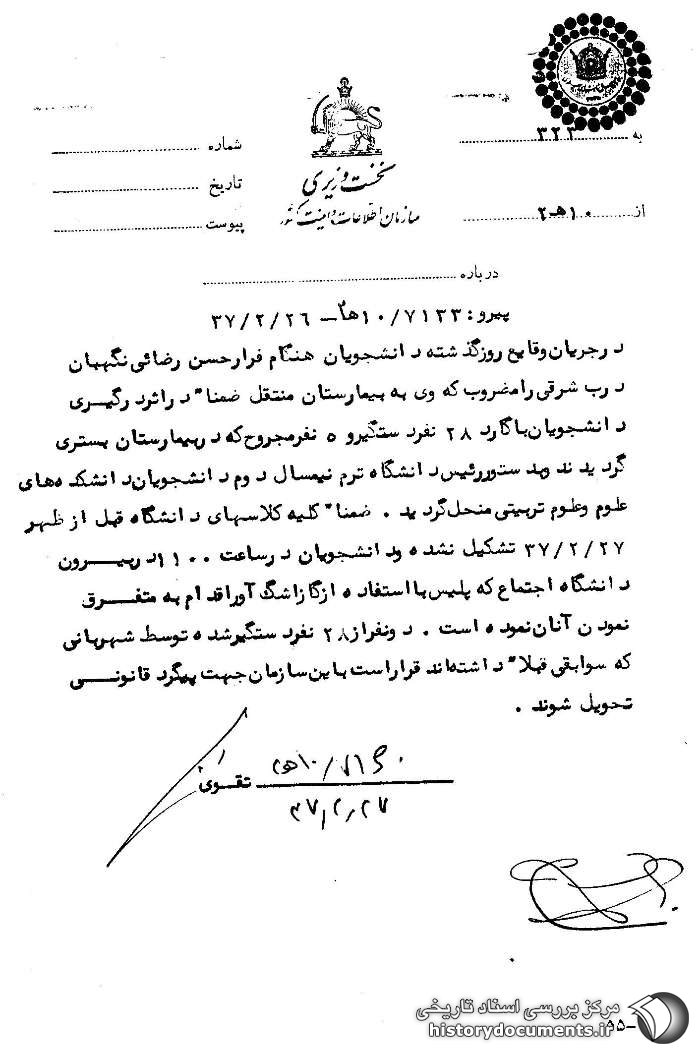 به ۳۲۳
شماره
نخست وزیری
تاریخ
سازمان اطلاعات و امنیت کشور
از ۱۰هـ۲
پیوست
درباره
پیرو: ۱۰/۷۱۲۳هـ۲ـ ۳۷/۲/۲۶
درجریان وقایع روزگذشته دانشجویان هنگام فرارحسن رضائی نگهبان
درب شرقی رامضروب که وی به بیمارستان منتقل ضمنا" دراثردرگیری
دانشجویان باگارد ۲۸ نفردستگیرو ۵ نفرمجروح که دربیمارستان بستری
گردیدند وبدستوررئیس دانشگاه ترم نیمسال دوم دانشجویان دانشکده های
علوم وعلوم تربیتی منحل گردید. ضمنا" کلیه کلاسهای دانشگاه قبل ازظهر
۳۷/۲/۲۷ تشکیل نشده ودانشجویان درساعت ۱۱۰۰ دربیرون
دانشگاه اجتماع که پلیس بااستفاده ازگازاشک آوراقدام به متفرق
نمودن آنان نموده است. دونفراز۲۸ نفردستگیرشده توسط شهربانی
که سوابقی قبلا" داشته‌اند قراراست باین سازمان جهت پیگرد قانونی
تحویل شوند.
تقوی
۳۷,۲,۲۷
مرکز بررسی اسناد تاریخی
historydocuments.ir